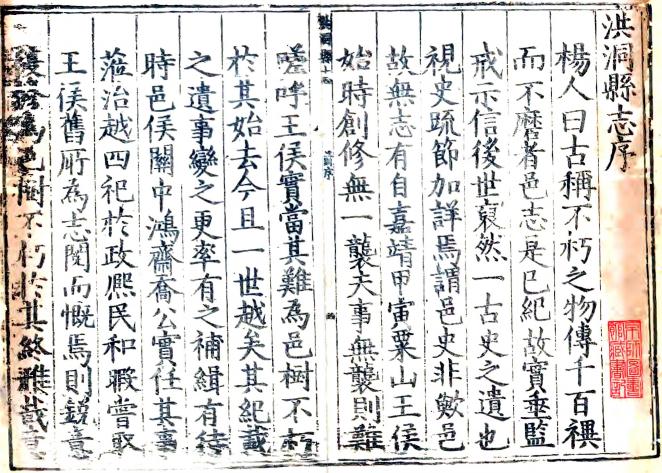 洪洞縣志序
楊人曰古稱不朽之物傳千百禩
而不磨者邑志是已紀故實垂監
戒示信後世裒然一古史之遺也
視史疏節加詳焉謂邑史非歟邑
故無志有自嘉靖甲寅粟山王侯
始時創修無一襲夫事無襲則難
嗟呼王侯實當其難為邑樹不朽
於其始去今且一世越矣其紀載
之遺事變之更率有之補緝有待
時邑侯關中鴻齋喬公實任其事
蒞治越四祀於政熈民和暇嘗取
王侯舊所為志閱而慨焉則銳意
為邑樹不朽於其終雖載